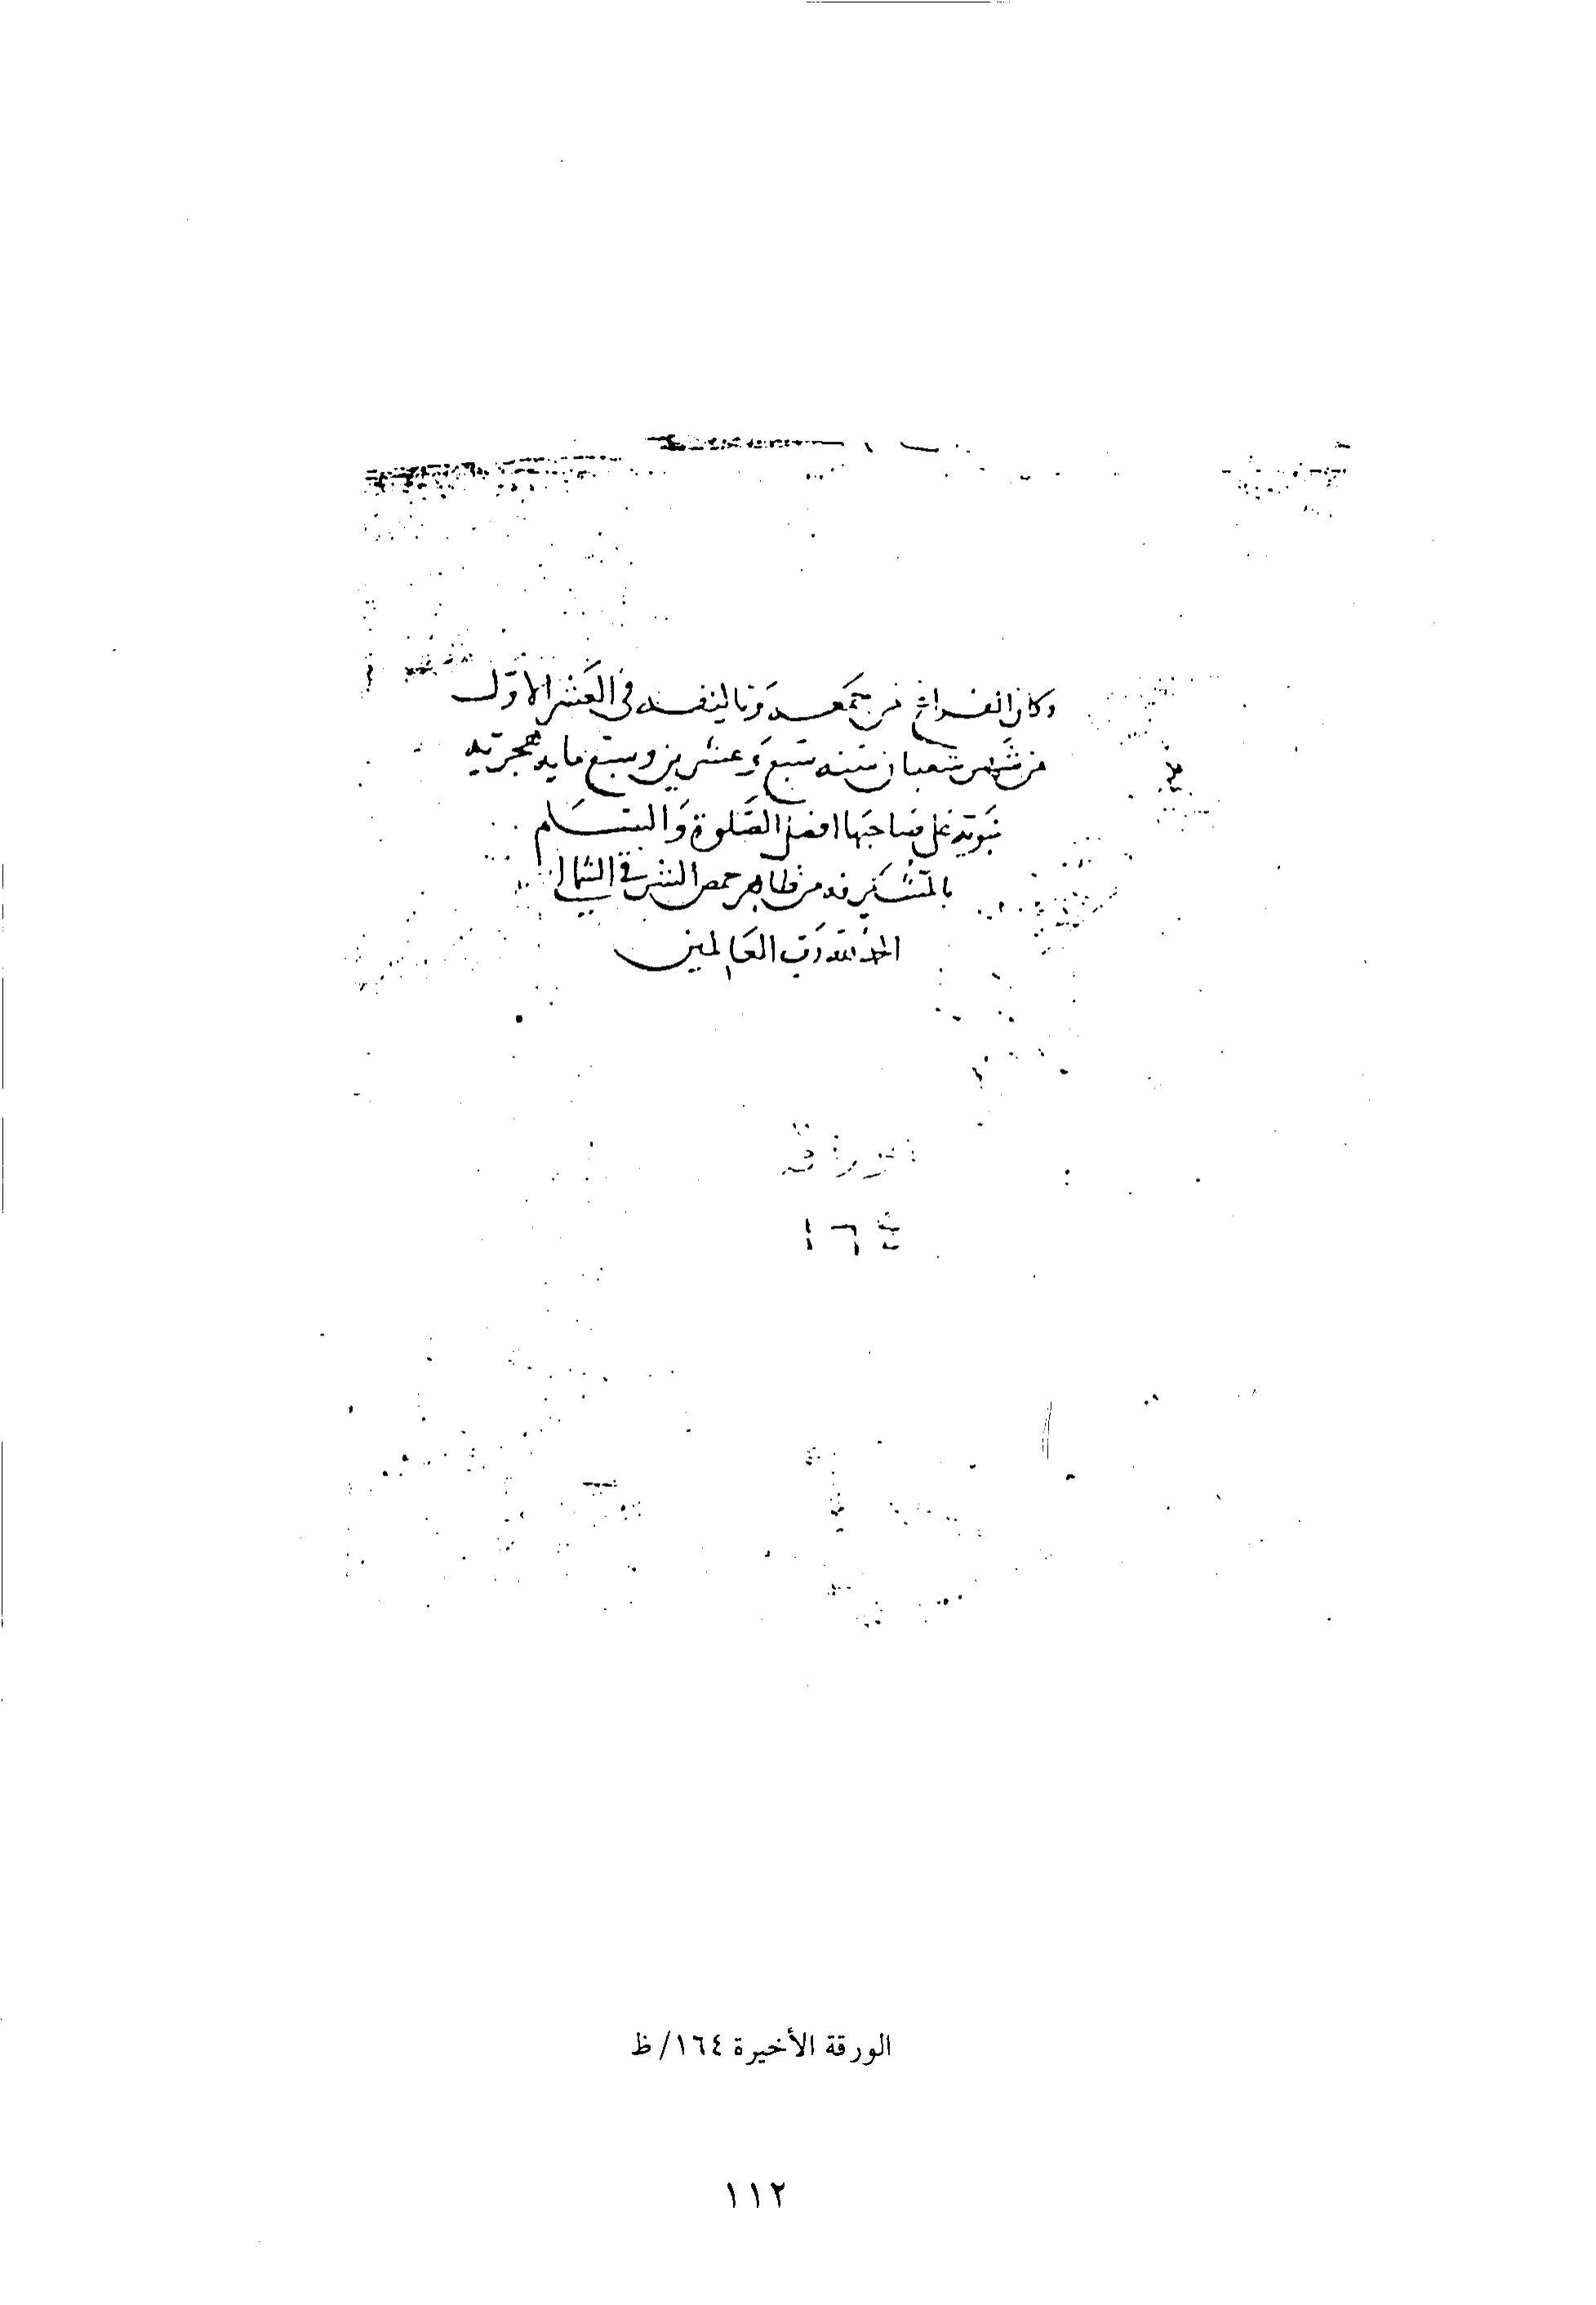 وكان الفراغ من جمعه وتاليفه في العشر الاول
من شهر شعبان سنه سبع وعشرين وسبع مايه هجريه
نبويه على صاحبها افضل الصلوة والسلام
بالمشيرفه من ظاهر حمص الشرقي الشمالي
الحمد لله رب العالمين
١٦٤
الورقة الأخيرة ١٦٤/ظ
١١٢